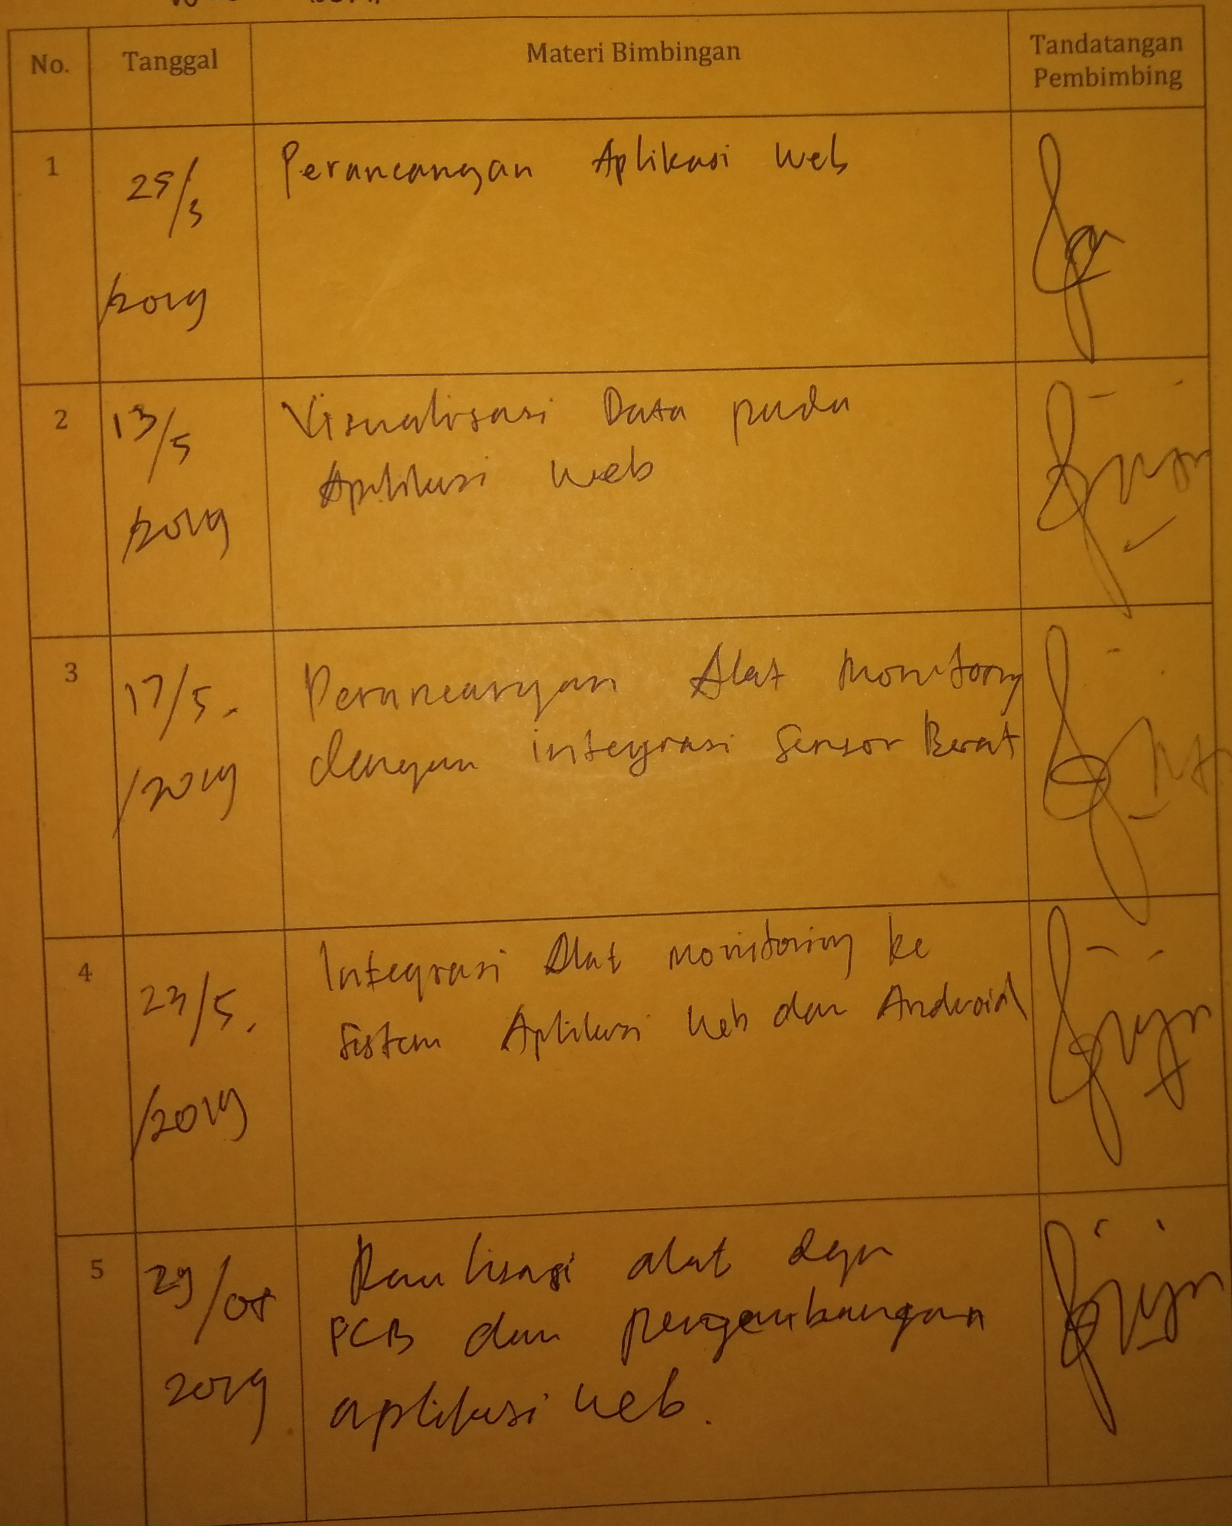 No. Tanggal Materi Bimbingan Tandatangan
Pembimbing
1 Perancangan Aplikasi Web
25/3
/2019
2 13/5 Visualisasi Data pada
Aplikasi Web
/2019
3 17/5. Perancangan Alat Monitoring
dengan integrasi Sensor Berat
/2019
4 Integrasi Alat Monitoring ke
23/5. Sistem Aplikasi Web dan Android
/2019
5 29/ Realisasi alat dgn
PCB dan pengembangan
2019 aplikasi web.